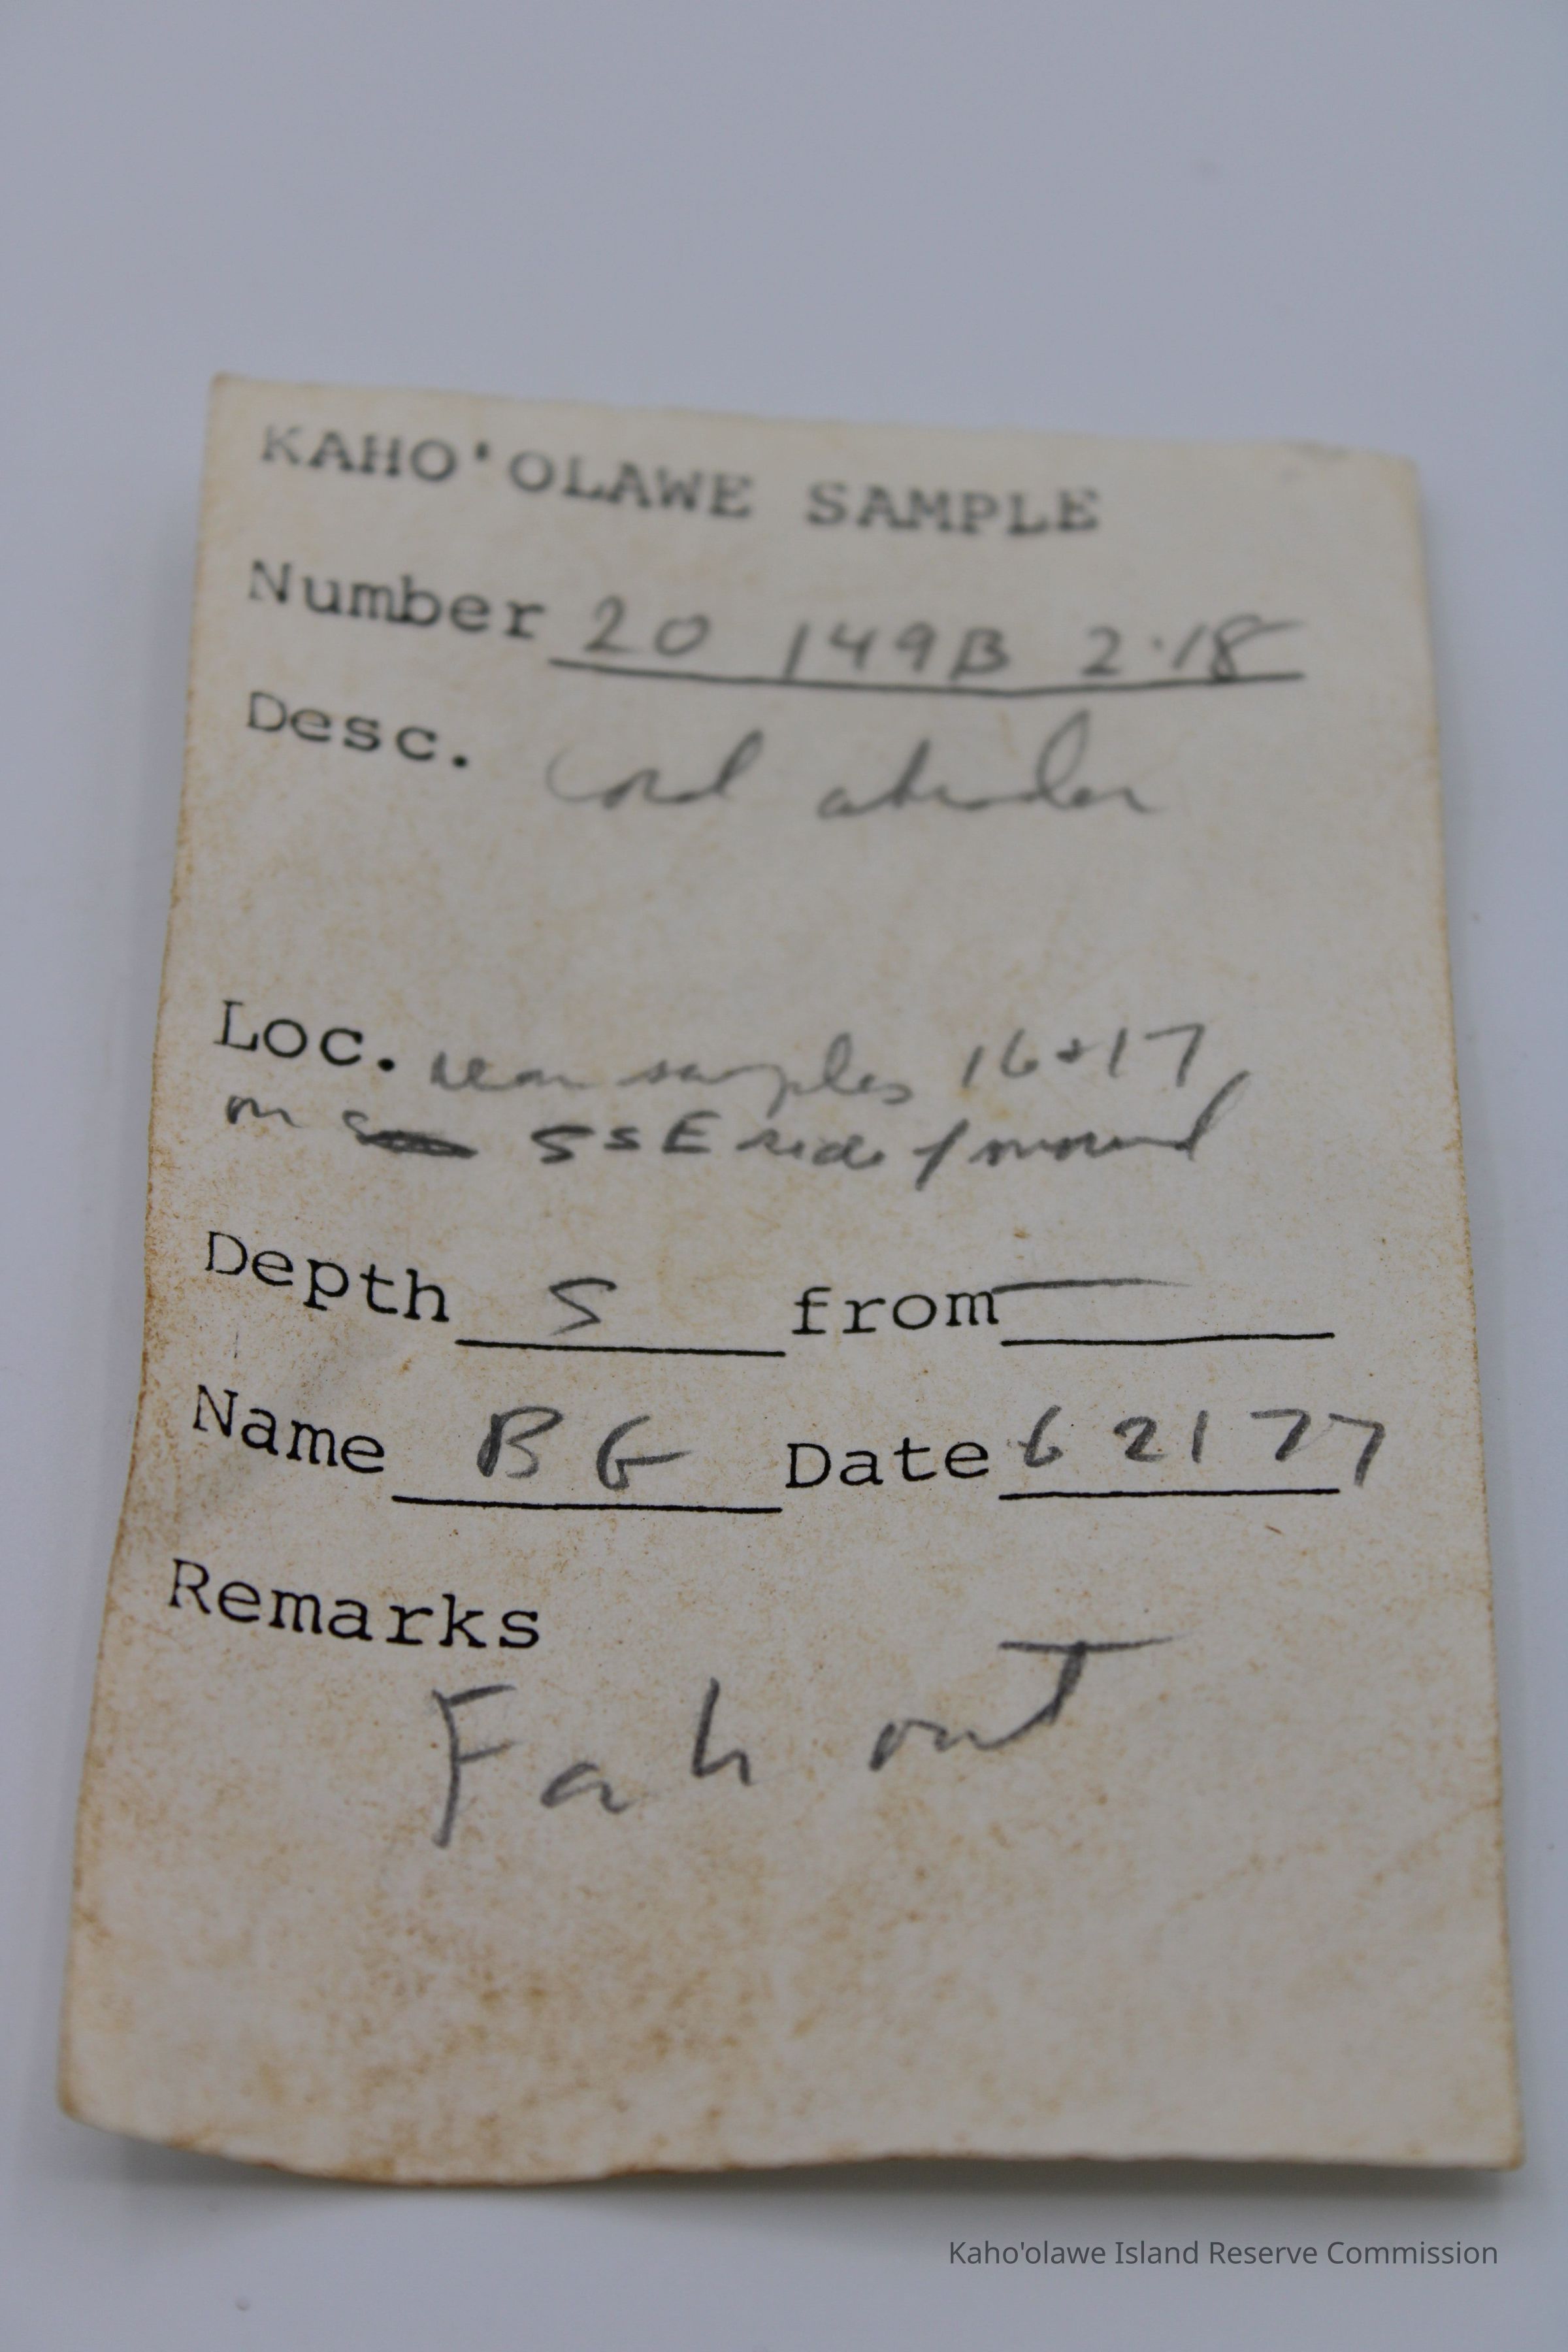 KAHO'OLAWE SAMPLE
Number 20 149B 2.18
Desc. Coral abrader
Loc. near samples 16+17
on SSE side of mound
Depth S from —
Name BG Date 6 21 77
Remarks
Fah out
Kaho'olawe Island Reserve Commission